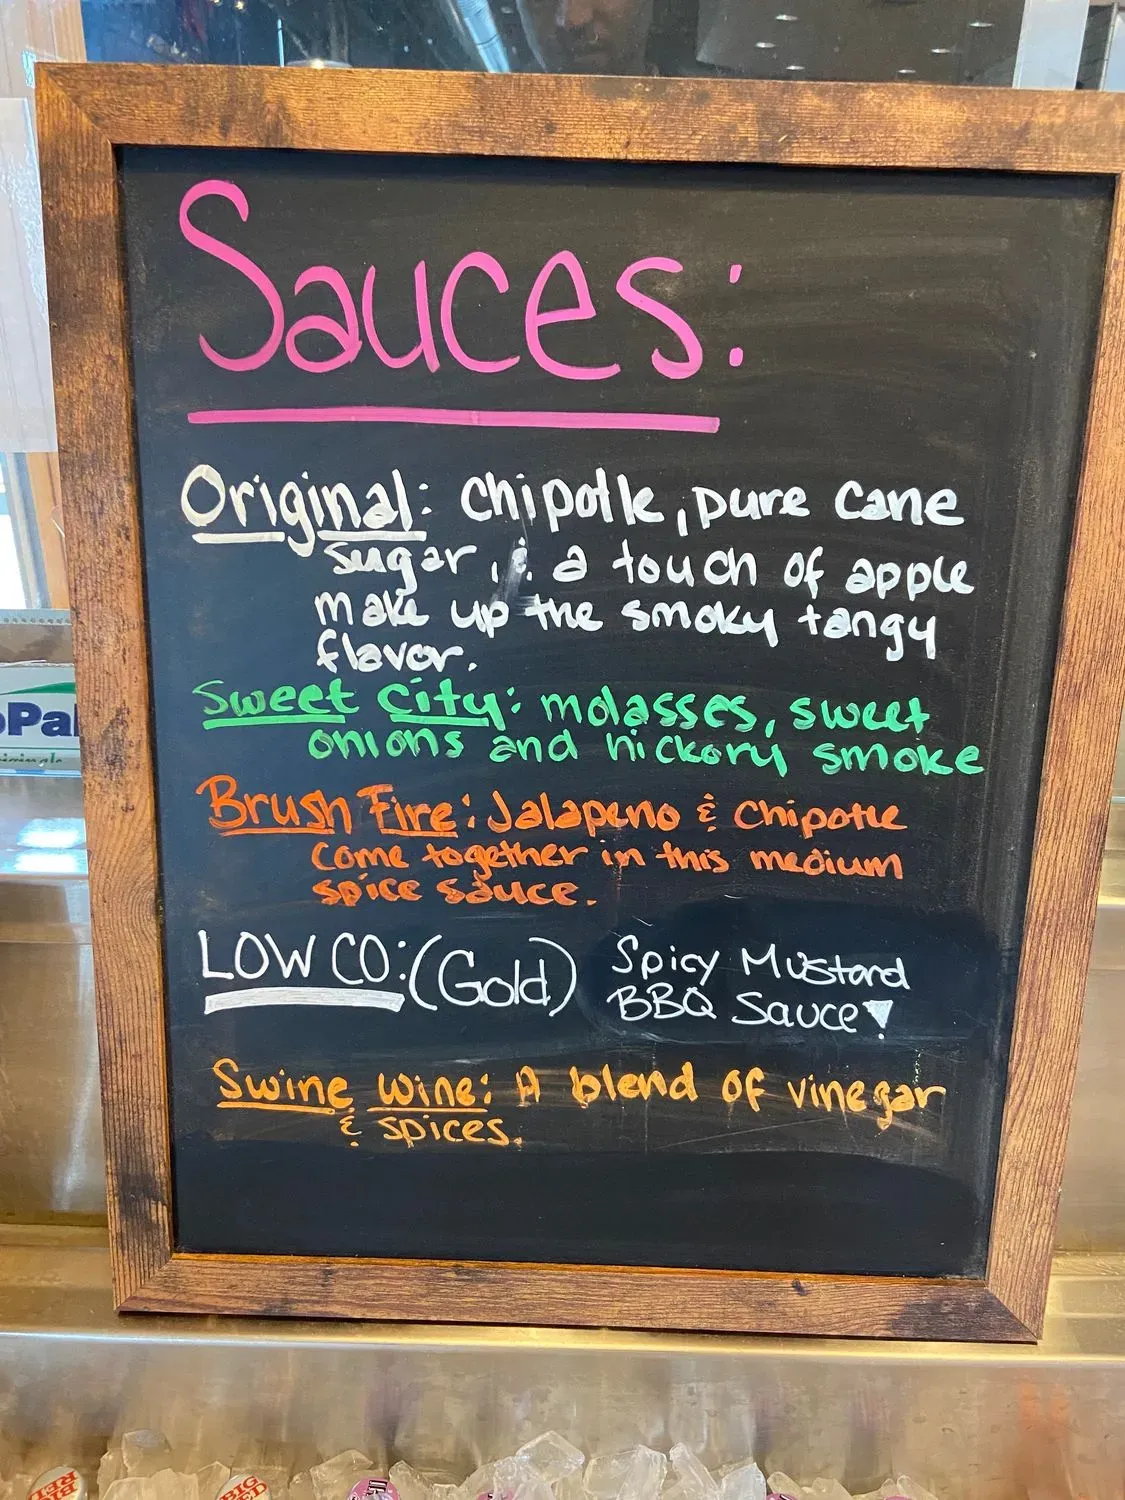 Sauces:
Original: chipotle, pure cane
sugar, & a touch of apple
make up the smoky tangy
flavor.
Sweet City: molasses, sweet
onions and hickory smoke
Brush Fire: Jalapeno & Chipotle
come together in this medium
spice sauce.
LOW CO: (Gold) Spicy Mustard
BBQ Sauce!
Swine Wine: A blend of vinegar
& spices.
BIG
RED
BIG